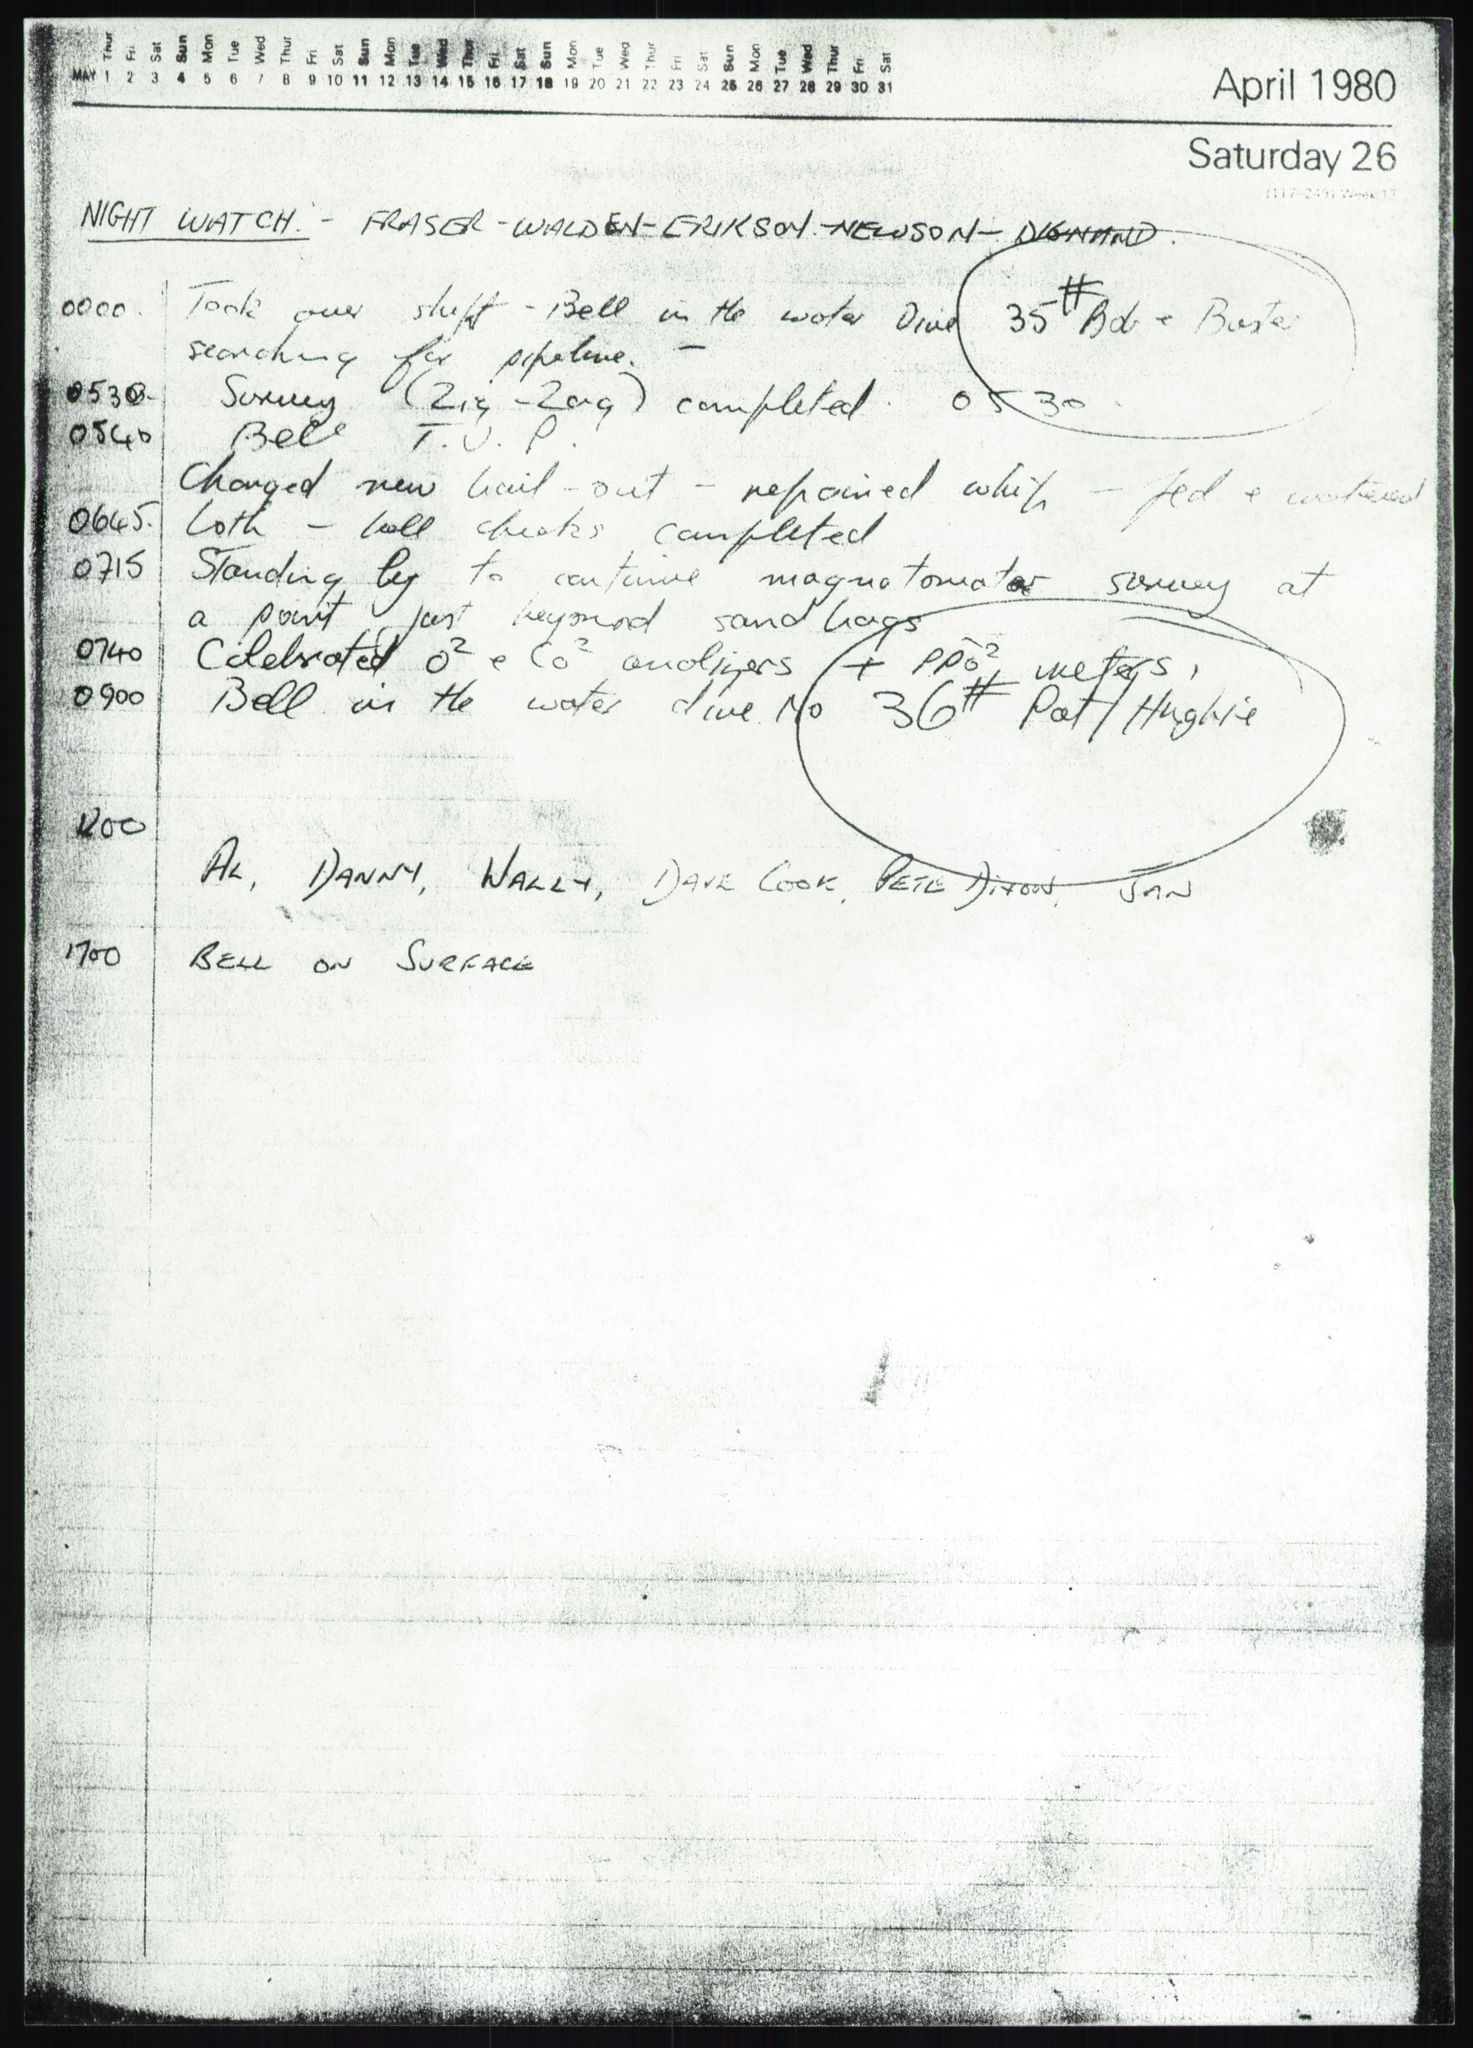 Thur Fri Sat Sun Mon Tue Wed Thur Fri Sat Sun Mon Tue Wed Thur Fri Sat Sun Mon Tue Wed Thur Fri Sat Sun Mon Tue Wed Thur Fri Sat
MAY 1 2 3 4 5 6 7 8 9 10 11 12 13 14 15 16 17 18 19 20 21 22 23 24 25 26 27 28 29 30 31
April 1980
Saturday 26
(117-249) Week 17
NIGHT WATCH:- FRASER - WALDEN - ERIKSON - NEWSON - DIGNAND.
0000. Took over shift - Bell in the water Dive 35# Bob & Buster
searching for pipeline. -
0530. Survey (Zig-Zag) completed. 0530.
0540 Bell T.U.P.
Changed new bail-out - repaired whip - fed & watered
0645. both - bell checks completed
0715 Standing by to continue magnatomator survey at
a point just beyond sand bags
0740 Celebrated O² & Co² analizers + PPO² meters,
0900 Bell in the water dive. No 36# Pat / Hughie
1200
AL, DANNY, WALLY, DAVE COOK, PETE DIXON, JAN
1700 BELL ON SURFACE